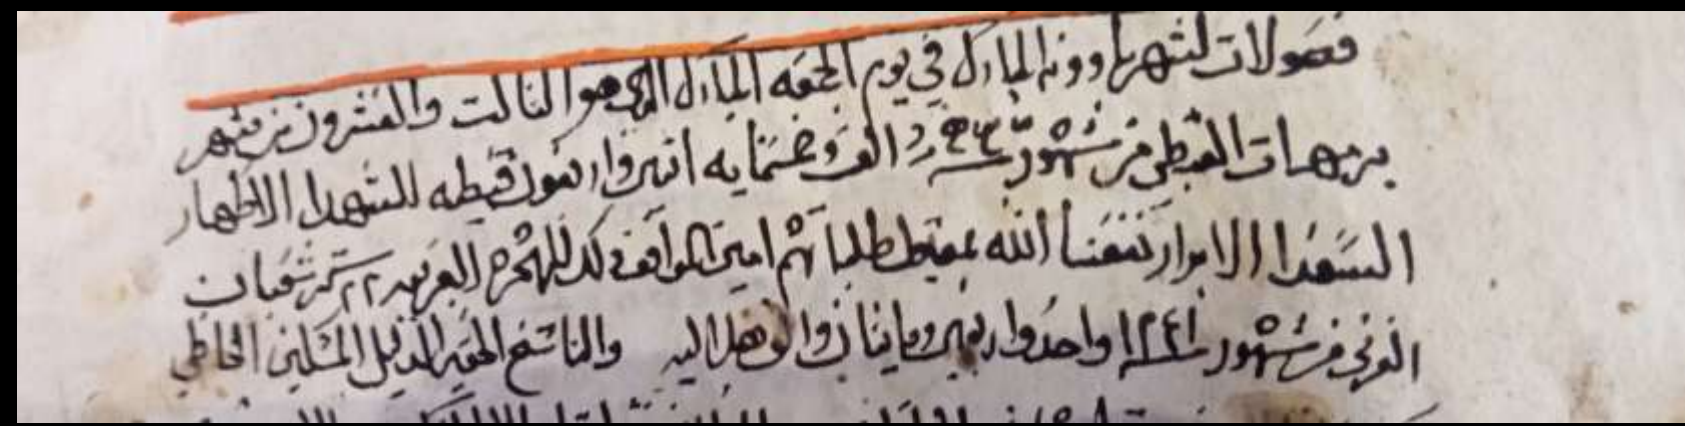 فصولات لشهر باوونه المبارك في يوم الجمعه المبارك الذي هو الثالت والعشرون من شهر
برمهات القبطي من شهور سنة الف وخمسمايه اتنين واربعون قبطيه للشهدا الاطهار
السعدا الابرار نفعنا الله بمقبول طلباتهم امين الموافق ذلك للهجره العربيه ٢٢ شهر شعبان
العربي من شهور سنة ١٢٤١ واحد واربعين ومايتان والف هلاليه والناسخ الحقير الذليل المسكين الخاطي